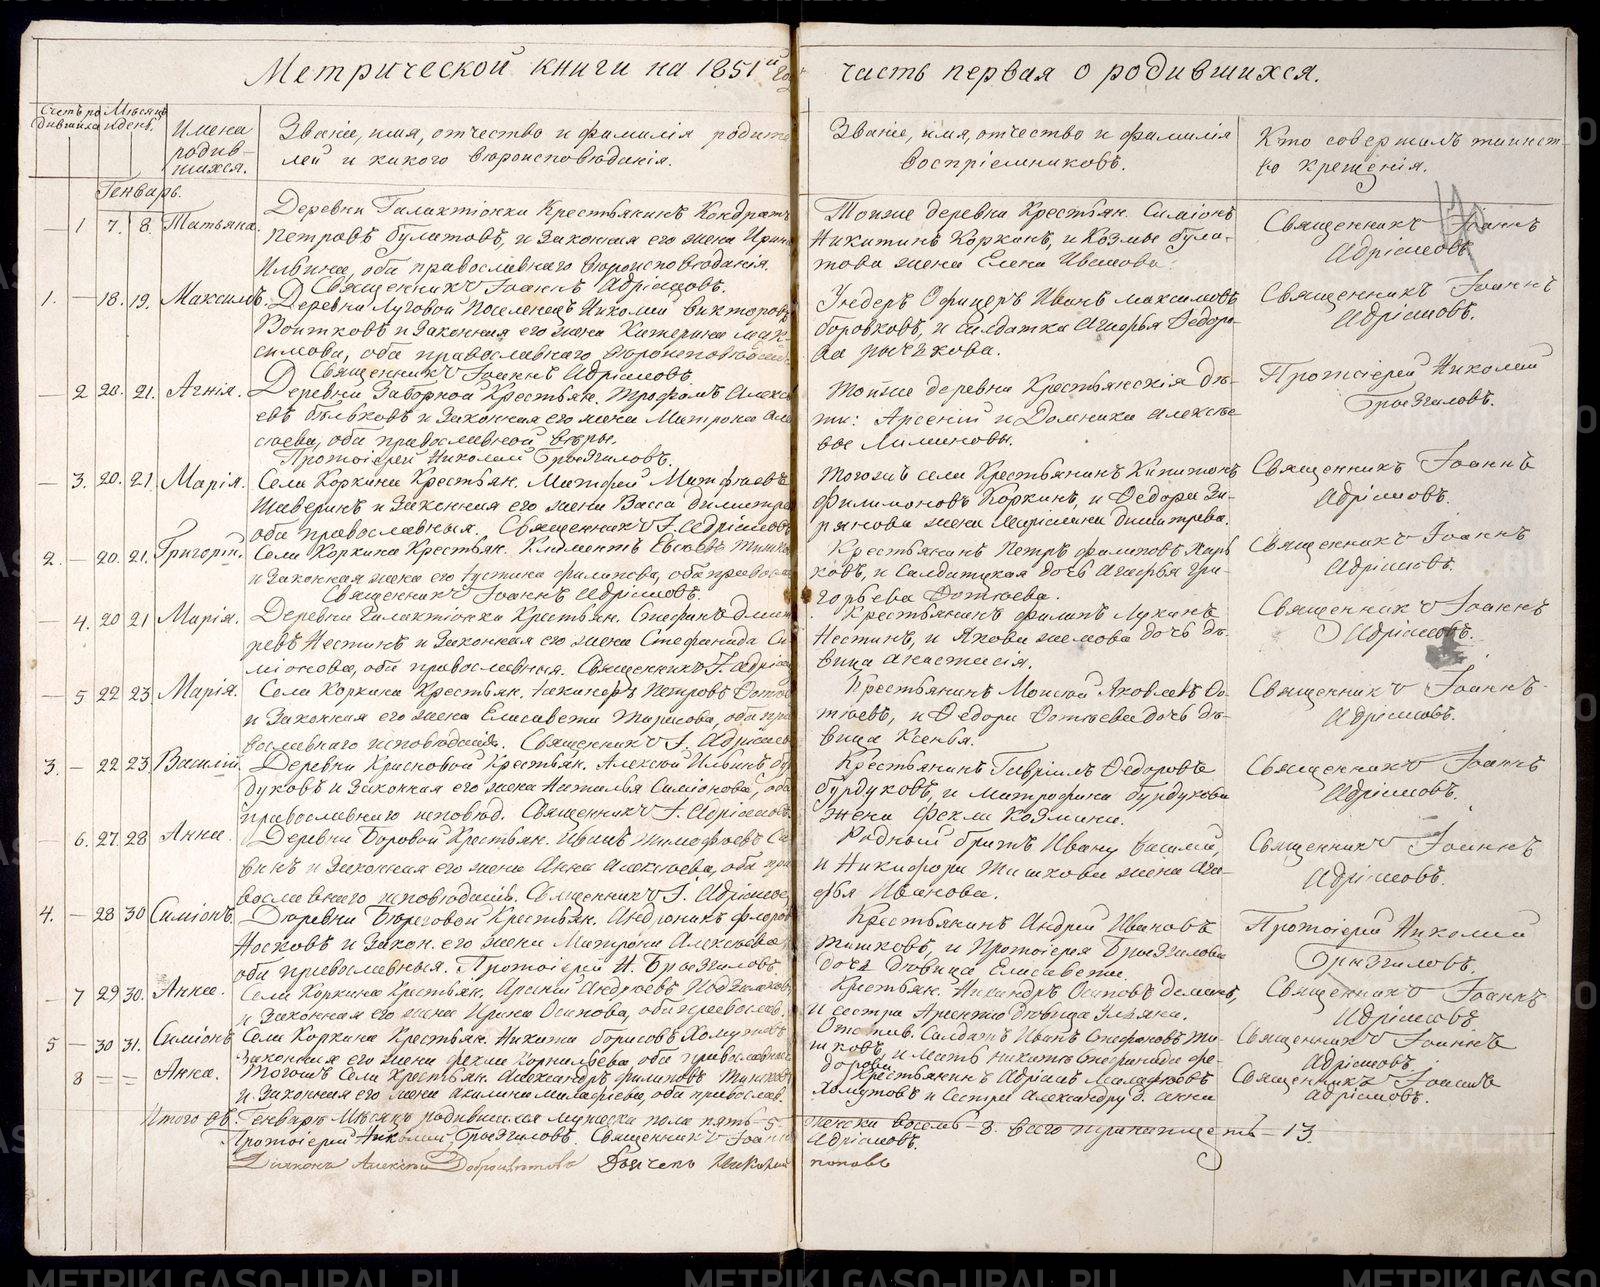 Метрической книги на 1851й год часть первая о родившихся.
Счетъ ро Мѣсяцъ
дившихся и день.
Имена
родив-
шихся.
Званіе, имя, отчество и фамилія родите
лей и какого вѣроисповѣданія.
Званіе, имя, отчество и фамилія
воспріемниковъ.
Кто совершалъ таинст-
во крещенія.
Генварь.
1 7. 8. Татьяна.
Деревни Галактіонки Крестьянинъ Кондрать
Петровъ Булатовъ, и Законная его жена Ирина
Ильина, оба православнаго вѣроисповѣданія.
Священникъ Іоаннъ Адріановъ.
Тойже деревни Крестьян. Симіонъ
Никитинъ Коркинъ, и Козмы Була-
това жена Елена Иванова.
Священникъ Іоаннъ
Адріановъ.
1. 18. 19. Максимъ.
Деревни Луговой Поселенецъ Николай Викторовъ
Войтковъ и Законная его жена Катерина Мак-
симова, оба православнаго вѣроисповѣдан.
Священникъ Іоаннъ Адріановъ
Ундеръ Офицеръ Иванъ Максимовъ
Боровковъ, и Салдатка Агафья Ѳедоро-
ва
Священникъ Іоаннъ
Адріановъ.
2 20. 21. Агнія.
Деревни Заборной Крестьян. Трофимъ Алексѣ
евъ Бѣльковъ и Законная его жена Матрона Але
сѣева, оба православной вѣры.
Протоіерей Николай Брызгаловъ.
Тойже деревни Крестьянскія дѣ-
ти: Арсеній и Домника Алексѣе
вы
Протоіерей Николай
Брызгаловъ.
3. 20. 21 Марія.
Села Коркина Крестьян. Матфей Матфѣевъ
Шаверинъ и Законная его жена Васса Димитрі
оба православныя. Священникъ І. Адріановъ
Тогожъ села Крестьянинъ Капитонъ
Филимоновъ Коркинъ, и Ѳедора Зы-
рянова жена Маріамна Димитрева.
Священникъ Іоаннъ
Адріановъ.
2. 20. 21. Григорій.
Села Коркина Крестьян. Климентъ Евсѣевъ
и Законная жена его Іустина Филипова, оба правосл
Священникъ Іоаннъ Адріановъ.
Крестьянинъ Петръ Филиповъ
ковъ, и Салдатская дочь Агафья Гри-
горьева Фотѣева.
Священникъ Іоаннъ
Адріановъ.
4. 20 21 Марія.
Деревни Галактіонки Крестьян. Стефанъ Дмит
ревъ Нестинъ и Законная его жена Стефанида Си
міонова, оба православныя. Священникъ І. Адріа
Крестьянинъ Филипъ Лукинъ
Нестинъ, и Якова дочь дѣ-
вица Анастасія.
Священникъ Іоаннъ
Адріановъ.
5 22 23 Марія.
Села Коркина Крестьян. Никаноръ Петровъ Фотѣе
и Законная его жена Елисавета Тарасова, оба пра
вославнаго исповѣданія. Священникъ І. Адріанов
Крестьянинъ Моисей Яковлевъ Фо-
тѣевъ, и Ѳедора Фотѣева дочь дѣ-
вица Ксенья.
Священникъ Іоаннъ
Адріановъ.
3. 22 23 Василій
Деревни Красновой Крестьян. Алексѣй Ильинъ Бур
дуковъ и Законная его жена Наталья Симіонова, оба
православнаго исповѣд. Священникъ І. Адріановъ
Крестьянинъ Гавріилъ Ѳедоровъ
Бурдуковъ, и Митрофана Бурдукова
жена Фекла Козмина.
Священникъ Іоаннъ
Адріановъ.
6. 27. 28 Анна.
Деревни Боровой Крестьян. Иванъ Тимофѣевъ Са
винъ и Законная его жена Анна Алексѣева, оба пра
вославнаго исповѣданія. Священникъ І. Адріанов
Родный братъ Ивану Василій,
и Никифора Тишкова жена Ага-
фья Иванова.
Священникъ Іоаннъ
Адріановъ.
4. 28 30 Симіонъ.
Деревни Береговой Крестьян. Андроникъ Флоров
Носковъ и Закон. его жена Матрона Алексѣева
оба православныя. Протоіерей Н. Брызгаловъ.
Крестьянинъ Андрей Ивановъ
Тишковъ, и Протоіерея Брызгалова
дочь дѣвица Елисавета.
Протоіерей Николай
Брызгаловъ.
7 29 30. Анна.
Села Коркина Крестьян. Арсеній Андрѣевъ
и Законная его жена Ирина Осипова, оба православ.
Крестьян. Никандръ Осиповъ
и сестра Арсенію дѣвица Ульяна.
Священникъ Іоаннъ
Адріановъ
5 30 31. Симіонъ
Села Коркина Крестьян. Никита Борисовъ Хомутовъ
Законная его жена Фекла Корнильева оба православныя
Отстав. Салдатъ Иванъ Стефановъ Ти-
шковъ, и мать Никиты Стефанида Фе-
дорова
Священникъ Іоаннъ
Адріановъ.
8 Анна.
Тогожъ Села Крестьян. Александръ Филиповъ
и Законная его жена Акилина оба православ.
Крестьянинъ Адріанъ
Хомутовъ и Сестра Александру д. Анна
Священникъ Іоаннъ
Адріановъ.
Итого въ Генварѣ Мѣсяцѣ родившихся мужеска пола пять - 5. женска восемь - 8. всего тринатцеть - 13.
Протоіерей Николай Брызгаловъ. Священникъ Іоаннъ Адріановъ.
Діаконъ Алексѣй Доброцвѣтовъ Дьячекъ Николай Поповъ
METRIKI.GASO-URAL.RU
METRIKI.GASO-URAL.RU
METRIKI.GASO-URAL.RU